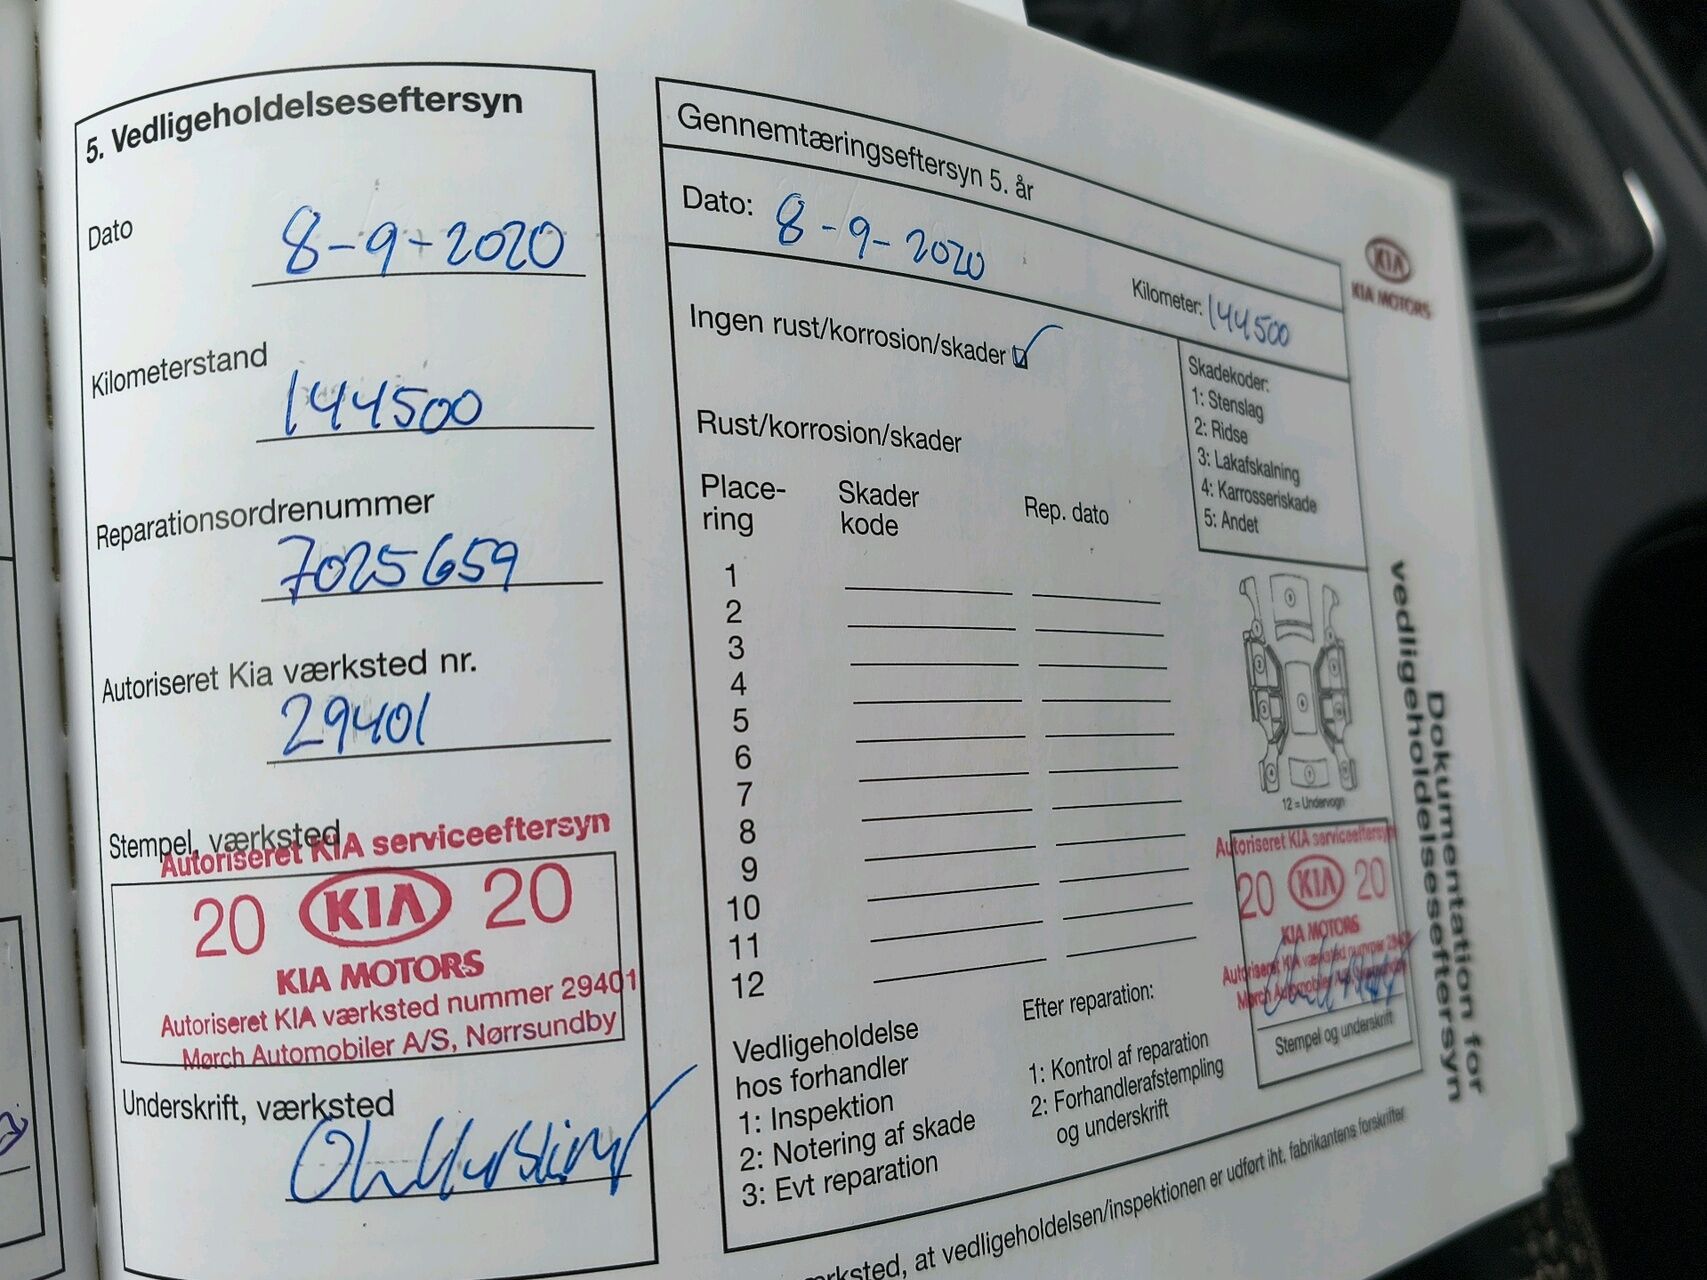 5. Vedligeholdelseseftersyn
Dato
8-9-2020
Kilometerstand
144500
Reparationsordrenummer
7025659
Autoriseret Kia værksted nr.
29401
Stempel, værksted
Autoriseret KIA serviceeftersyn
20 KIA 20
KIA MOTORS
Autoriseret KIA værksted nummer 29401
Mørch Automobiler A/S, Nørrsundby
Underskrift, værksted
Gennemtæringseftersyn 5. år
Dato: 8-9-2020
Kilometer: 144500
Ingen rust/korrosion/skader
Rust/korrosion/skader
Place-
ring
Skader
kode
Rep. dato
1
2
3
4
5
6
7
8
9
10
11
12
Skadekoder:
1: Stenslag
2: Ridse
3: Lakafskalning
4: Karrosseriskade
5: Andet
12 = Undervogn
Autoriseret KIA serviceeftersyn
20 KIA 20
KIA MOTORS
Autoriseret KIA værksted nummer
Mørch Automobiler
Stempel og underskrift
Vedligeholdelse
hos forhandler
1: Inspektion
2: Notering af skade
3: Evt reparation
Efter reparation:
1: Kontrol af reparation
2: Forhandlerafstempling
og underskrift
at vedligeholdelsen/inspektionen er udført iht. fabrikantens forskrifter
KIA
KIA MOTORS
Dokumentation for
vedligeholdelseseftersyn